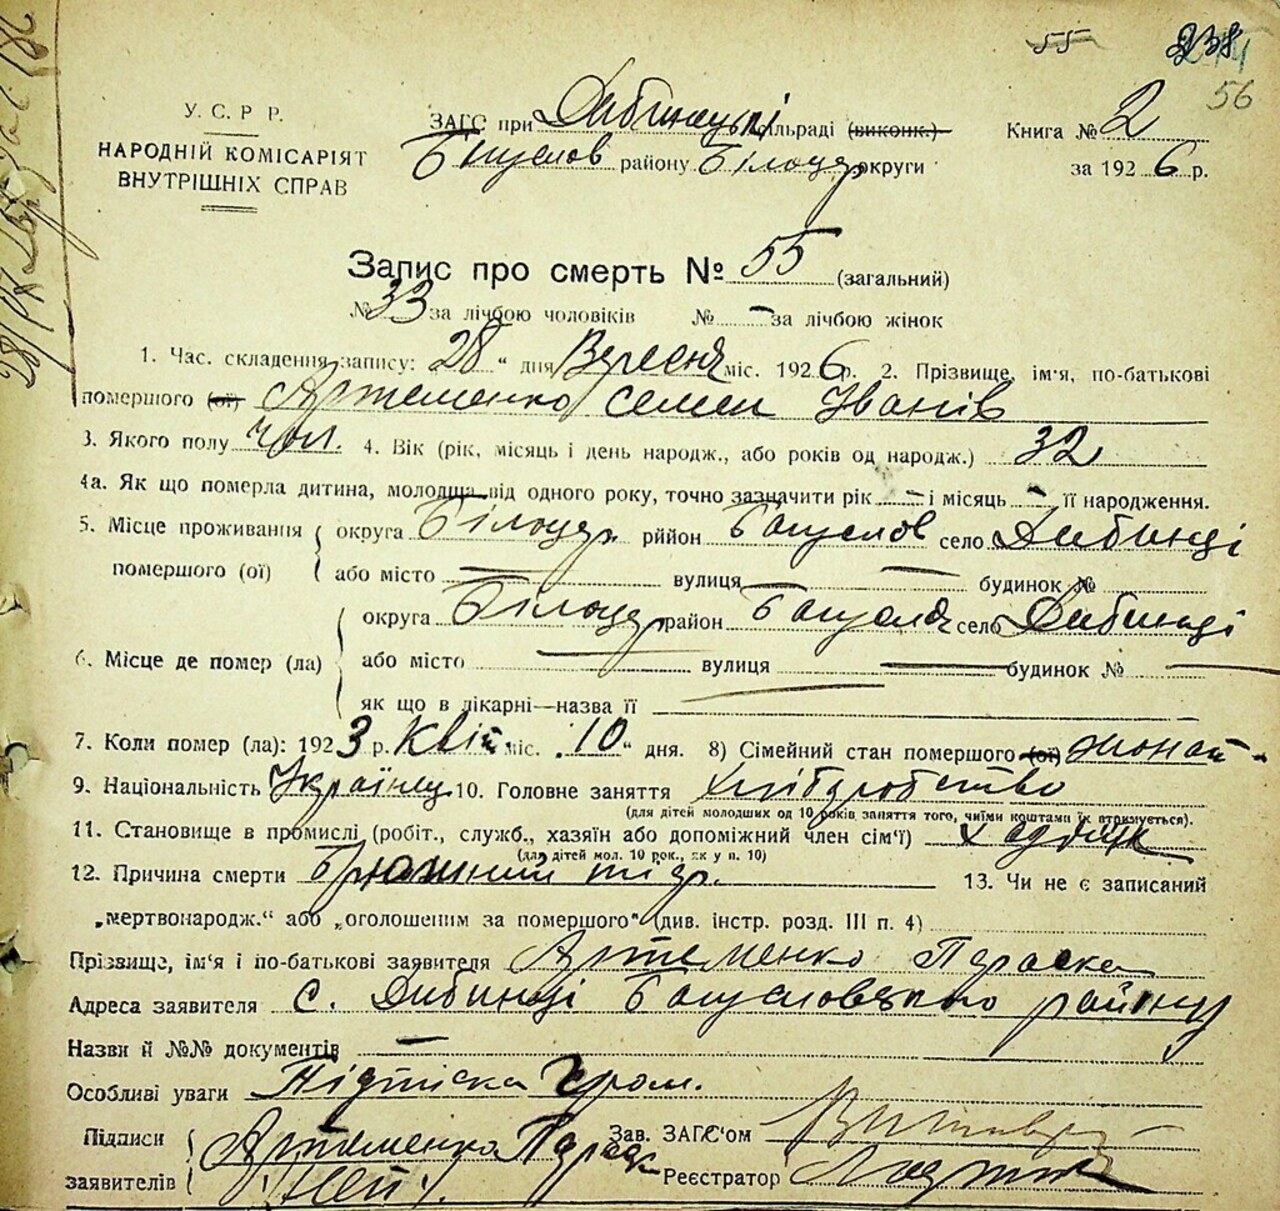 55 238
56
У. С. Р. Р.
НАРОДНІЙ КОМІСАРІЯТ
ВНУТРІШНІХ СПРАВ
ЗАГС при Дибинецькі сільраді (виконк.) Книга № 2
Богуслов району Білоцер округи за 1926 р.
Запис про смерть № 55 (загальний)
№ 33 за лічбою чоловіків № — за лічбою жінок
1. Час складення запису: 28 “ дня Вересня міс. 1926 р. 2. Прізвище, ім'я, по-батькові
помершого (ої) Артеменко Семен Іванів
3. Якого полу чол. 4. Вік (рік, місяць і день народж., або років од народж.) 32
4а. Як що померла дитина, молодша від одного року, точно зазначити рік — і місяць — її народження.
5. Місце проживання округа Білоцер. рййон Богуслов село Дибинці
помершого (ої) або місто — вулиця — будинок № —
округа Білоцер. район Богуслов село Дибинці
6. Місце де помер (ла) або місто — вулиця — будинок № —
як що в лікарні—назва її —
7. Коли помер (ла): 1923 р. Квіт. міс. 10 “ дня. 8) Сімейний стан помершого (ої) жонат
9. Національність Українец 10. Головне заняття хліборобство
(для дітей молодших од 10 років заняття того, чиїми коштами їх втримується).
11. Становище в промислі (робіт., служб., хазяїн або допоміжний член сім'ї)
(для дітей мол. 10 рок., як у п. 10)
12. Причина смерти 13. Чи не є записаний
„мертвонародж.“ або „оголошеним за помершого“ (див. інстр. розд. III п. 4)
Прізвище, ім'я і по-батькові заявителя Артеменко Параска
Адреса заявителя с. Дибинці Богуславського району
Назви й №№ документів —
Особливі уваги Підписка Гром.
Підписи Артеменко Параск Зав. ЗАГС'ом
заявителів Реєстратор